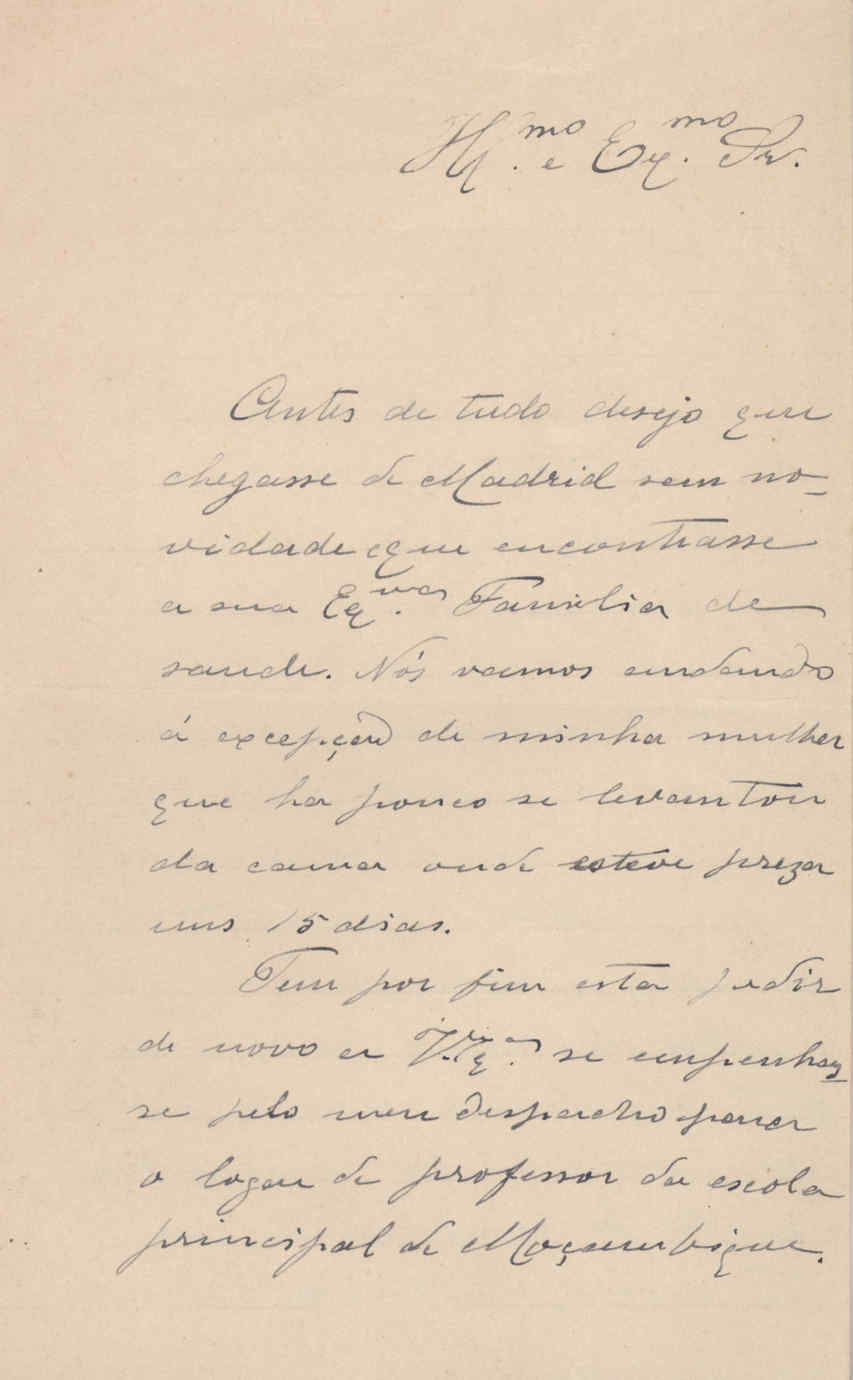 Ill.mo e Ex.mo Sr.
Antes de tudo desejo que
chegasse de Madrid sem no-
vidade e que encontrasse
a sua Ex.ma Familia de
saude. Nós vamos andando
á excepção de minha mulher
que ha pouco se levantou
da cama onde esteve preza
uns 15 dias.
Tem por fim esta pedir
de novo a V. Ex.a se empenhas-
se pelo meu despacho para
o logar de professor da escola
principal de Moçambique.